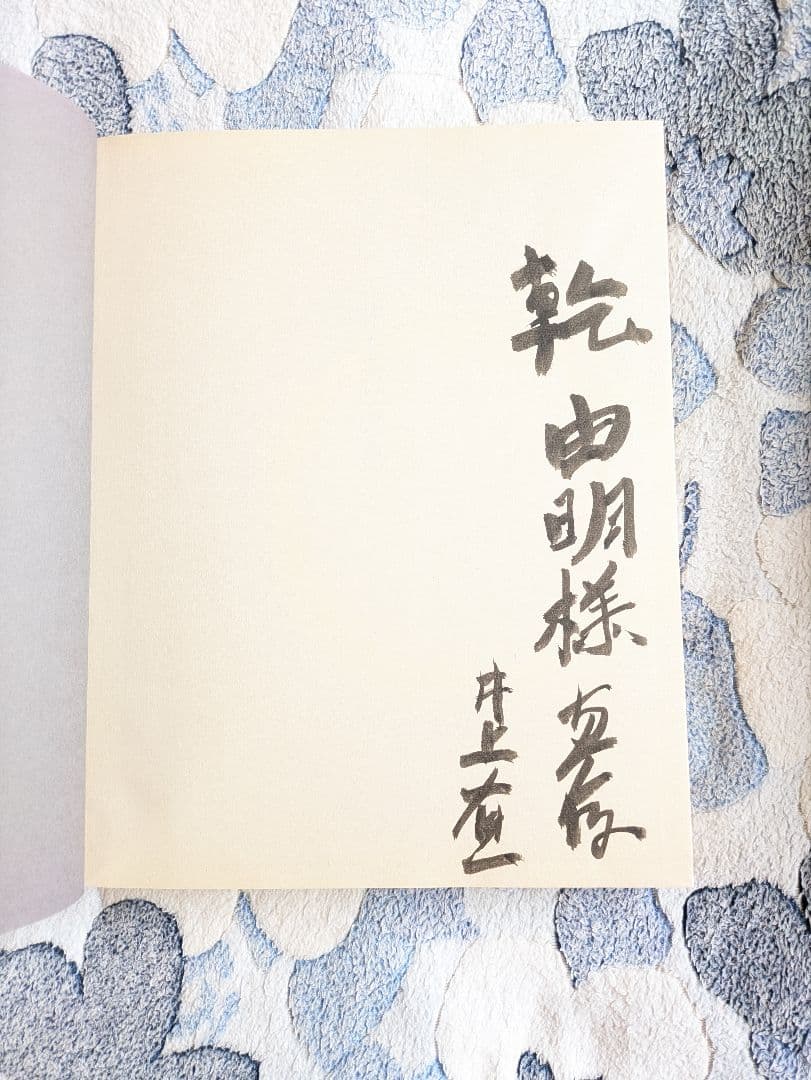 乾 由明様 恵存
井上